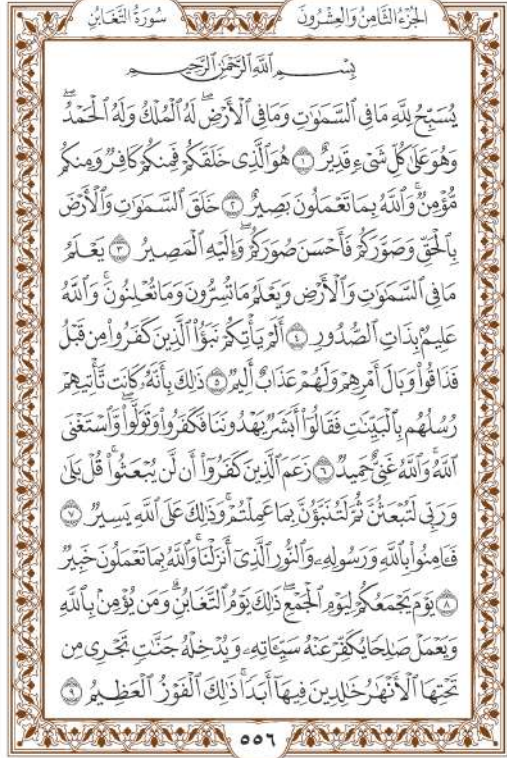 الجُزْءُ الثَّامِنُ وَالعِشْرُونَ سُورَةُ التَّغَابُنِ
بِسْمِ ٱللَّهِ ٱلرَّحْمَٰنِ ٱلرَّحِيمِ
يُسَبِّحُ لِلَّهِ مَا فِي ٱلسَّمَٰوَٰتِ وَمَا فِي ٱلْأَرْضِۖ لَهُ ٱلْمُلْكُ وَلَهُ ٱلْحَمْدُۖ
وَهُوَ عَلَىٰ كُلِّ شَيْءٍ قَدِيرٌ ١ هُوَ ٱلَّذِي خَلَقَكُمْ فَمِنكُمْ كَافِرٌ وَمِنكُم
مُّؤْمِنٌۚ وَٱللَّهُ بِمَا تَعْمَلُونَ بَصِيرٌ ٢ خَلَقَ ٱلسَّمَٰوَٰتِ وَٱلْأَرْضَ
بِٱلْحَقِّ وَصَوَّرَكُمْ فَأَحْسَنَ صُوَرَكُمْۖ وَإِلَيْهِ ٱلْمَصِيرُ ٣ يَعْلَمُ
مَا فِي ٱلسَّمَٰوَٰتِ وَٱلْأَرْضِ وَيَعْلَمُ مَا تُسِرُّونَ وَمَا تُعْلِنُونَۚ وَٱللَّهُ
عَلِيمٌۢ بِذَاتِ ٱلصُّدُورِ ٤ أَلَمْ يَأْتِكُمْ نَبَؤُا۟ ٱلَّذِينَ كَفَرُوا۟ مِن قَبْلُ
فَذَاقُوا۟ وَبَالَ أَمْرِهِمْ وَلَهُمْ عَذَابٌ أَلِيمٌ ٥ ذَٰلِكَ بِأَنَّهُۥ كَانَت تَّأْتِيهِمْ
رُسُلُهُم بِٱلْبَيِّنَٰتِ فَقَالُوٓا۟ أَبَشَرٌ يَهْدُونَنَا فَكَفَرُوا۟ وَتَوَلَّوا۟ۖ وَّٱسْتَغْنَى
ٱللَّهُۚ وَٱللَّهُ غَنِيٌّ حَمِيدٌ ٦ زَعَمَ ٱلَّذِينَ كَفَرُوٓا۟ أَن لَّن يُبْعَثُوا۟ۚ قُلْ بَلَىٰ
وَرَبِّي لَتُبْعَثُنَّ ثُمَّ لَتُنَبَّؤُنَّ بِمَا عَمِلْتُمْۚ وَذَٰلِكَ عَلَى ٱللَّهِ يَسِيرٌ ٧
فَـَٔامِنُوا۟ بِٱللَّهِ وَرَسُولِهِۦ وَٱلنُّورِ ٱلَّذِيٓ أَنزَلْنَاۚ وَٱللَّهُ بِمَا تَعْمَلُونَ خَبِيرٌ
٨ يَوْمَ يَجْمَعُكُمْ لِيَوْمِ ٱلْجَمْعِۖ ذَٰلِكَ يَوْمُ ٱلتَّغَابُنِۗ وَمَن يُؤْمِنۢ بِٱللَّهِ
وَيَعْمَلْ صَٰلِحًا يُكَفِّرْ عَنْهُ سَيِّـَٔاتِهِۦ وَيُدْخِلْهُ جَنَّٰتٍ تَجْرِي مِن
تَحْتِهَا ٱلْأَنْهَٰرُ خَٰلِدِينَ فِيهَآ أَبَدًاۚ ذَٰلِكَ ٱلْفَوْزُ ٱلْعَظِيمُ ٩
٥٥٦